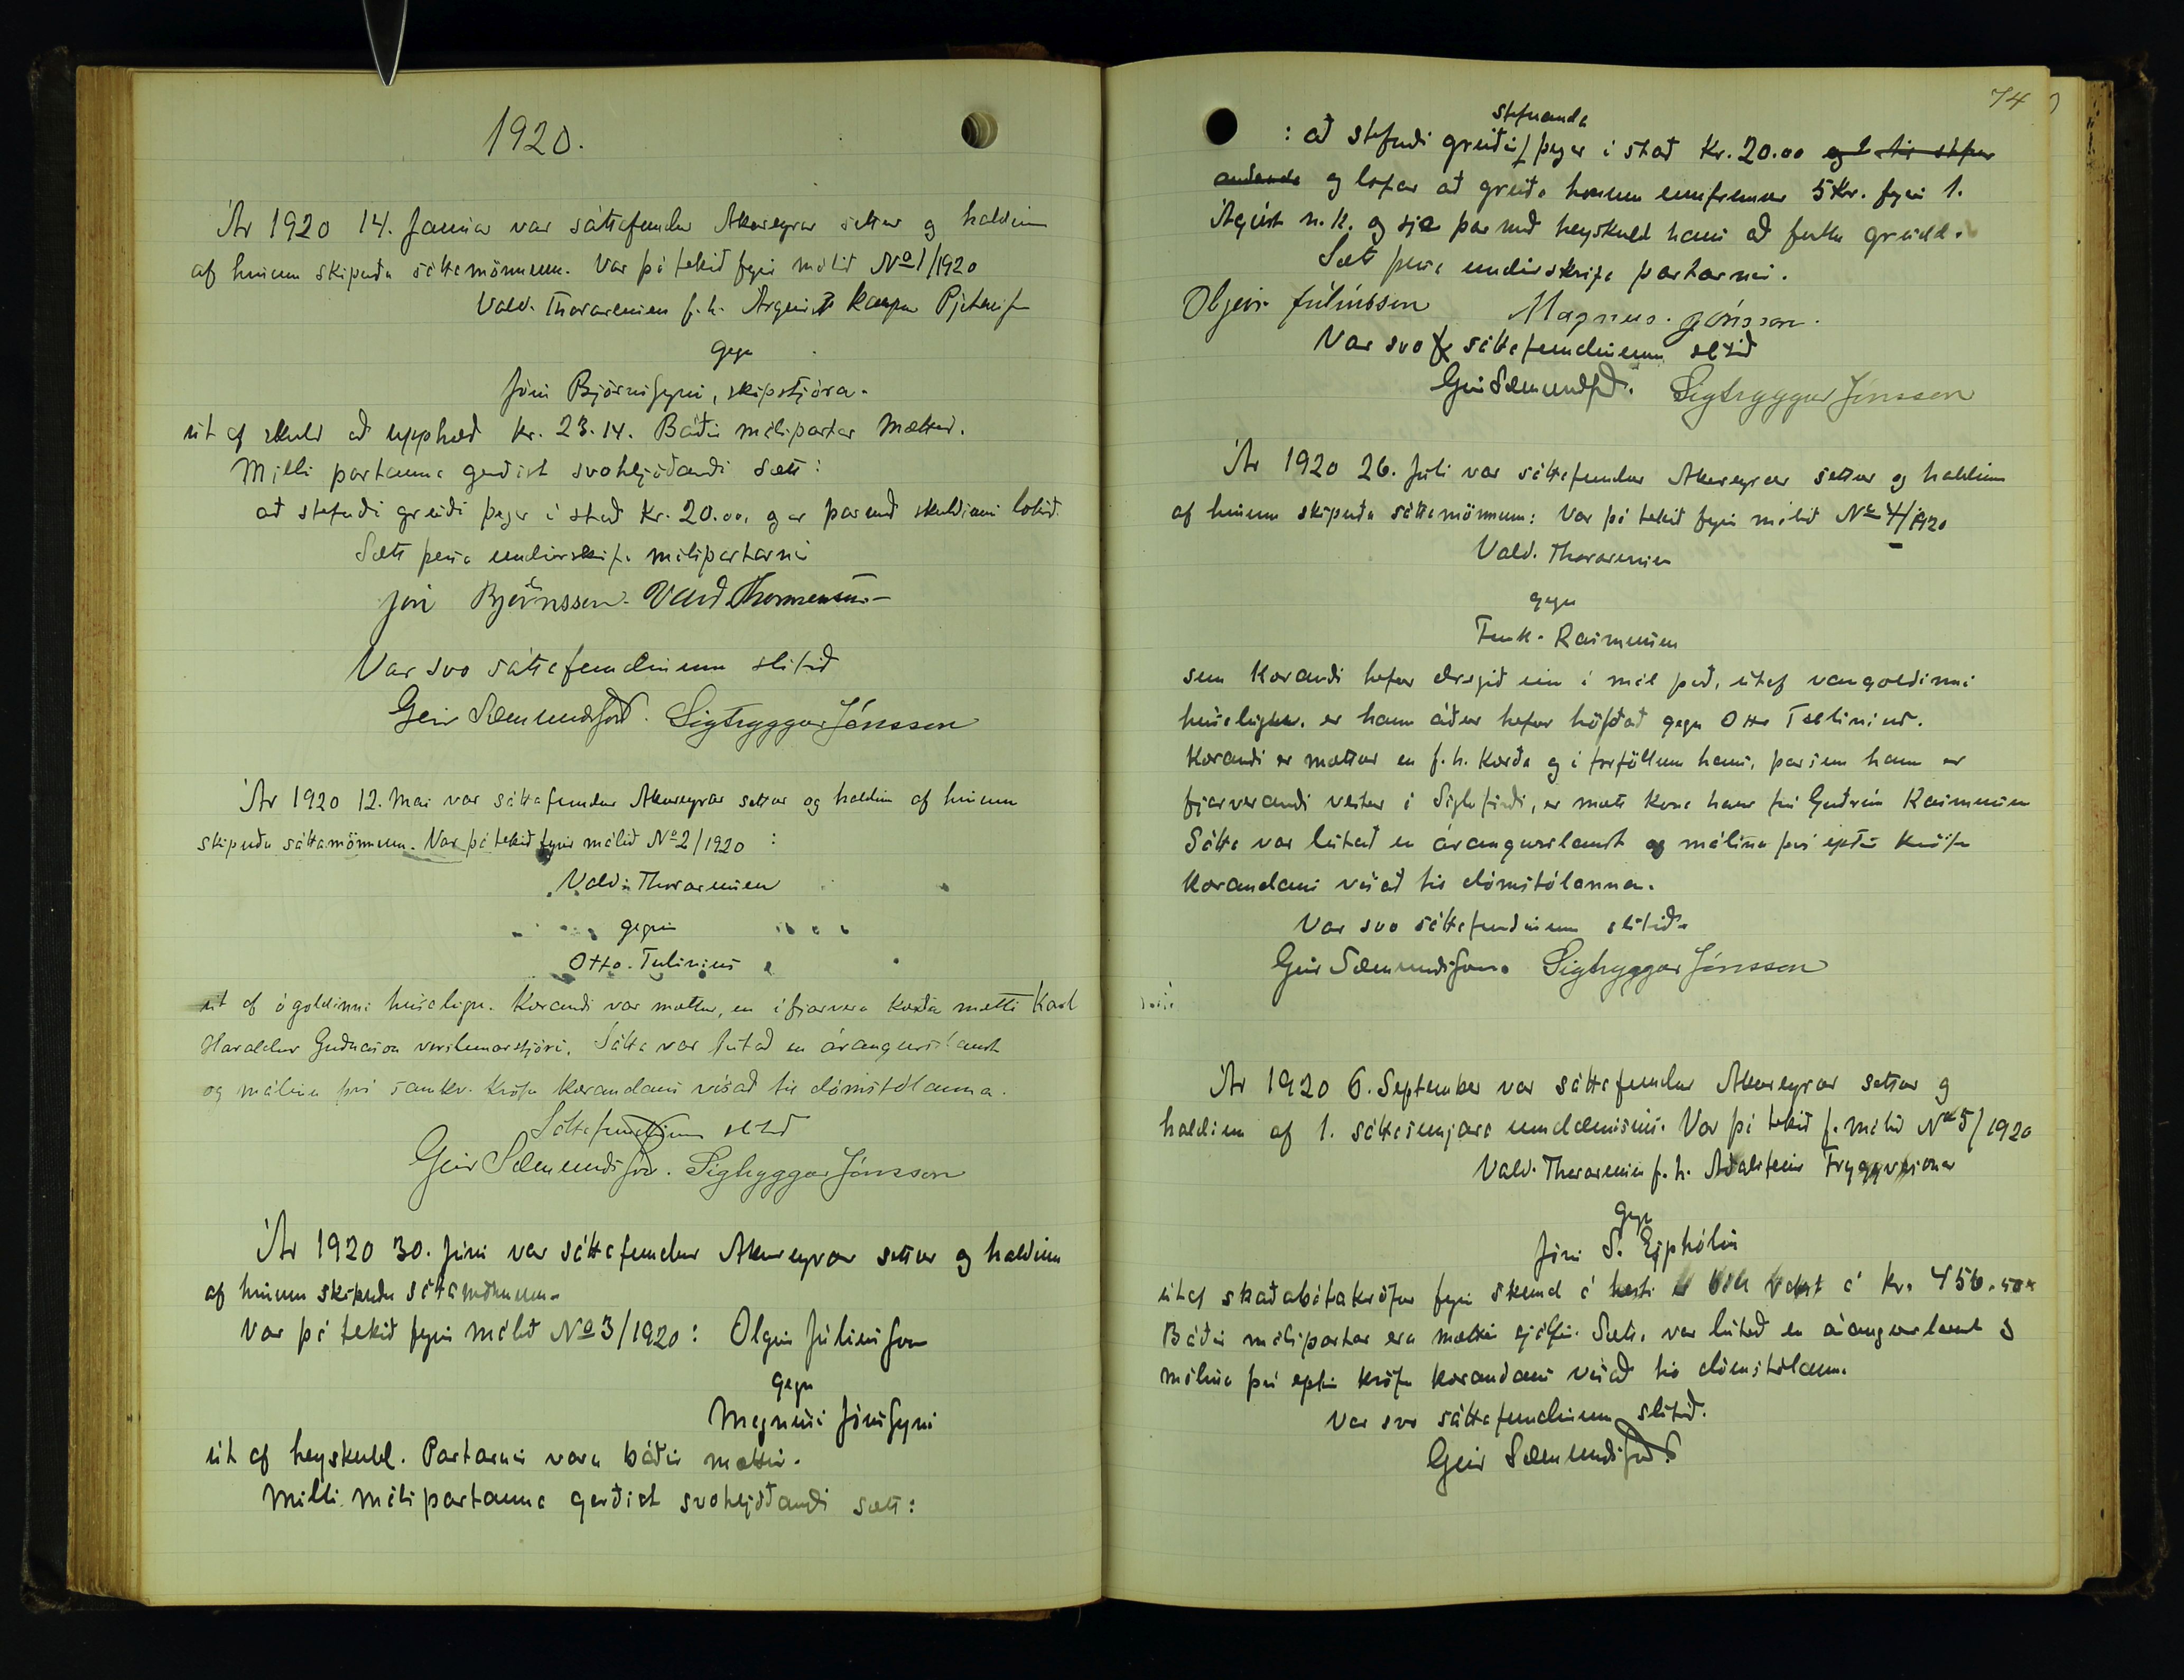 1920.
Ár 1920 14. Janúar var sáttafundur Akureyrar settur og haldinn
af hinum skipuðu sáttamönnum. Var þá tekið fyrir málið No 1/1920
Vald. Thorarensen f.h. Ásgeirs kaupm Pjeturssonar
gegn
Jóni Björnssyni, skipstjóra.
út af skuld að upphæð kr. 23.14. Báðir málspartar mættir.
Milli partanna gerðist svohljóðandi sætt:
að stefndi greiði þegar í stað kr. 20.00, og er þar með skuldinni lokið.
Sætt þessa undirskrifa málspartarnir
Jón Björnsson. Vald Thorarensen
Var svo sáttafundinum slitið
Geir Sæmundsson. Sigtryggur Jónsson
Ár 1920 12. Maí var sáttafundur Akureyrar settur og haldinn af hinum
skipuðu sáttamönnum. Var þá tekið fyrir málið No 2/1920 :
Vald. Thorarensen
gegn
Otto Tulinius
út af ógoldinni húsaleigu. Kærandi var mættur, en í fjarveru kærða mætti Karl
Haraldur Guðnason verslunarstjóri. Sátta var leitað en árangurslaust
og málinu því samkv. kröfu kærandans vísað til dómstólanna.
Sáttafundinum slitið
Geir Sæmundsson. Sigtryggur Jónsson
Ár 1920 30. Júní var sáttafundur Akureyrar settur og haldinn
af hinum skipuðu sáttamönnum.
Var þá tekið fyrir málið No 3/1920: Olgeir Júlíusson
gegn
Magnúsi Jónssyni
út af heyskuld. Partarnir voru báðir mættir.
Milli málspartanna gerðist svohljóðandi sætt:
74
stefnanda
: að stefndi greiði þegar í stað kr. 20.00 og til stefn
andanda og lofar að greiða honum ennfremur 5 kr. fyrir 1.
Ágúst n.k. og sje þar með heyskuld hans að fullu greidd.
Sætt þessa undirskrifa partarnir.
Olgeir Júlíusson Magnus. Jónsson.
Var svo sáttafundinum slitið
Geir Sæmundsson. Sigtryggur Jónsson
Ár 1920 26. Júli var sáttafundur Akureyrar settur og haldinn
af hinum skipuðu sáttamönnum: Var þá tekið fyrir málið No 4/1920
Vald. Thorarensen
gegn
Fr. Rasmussen
sem kærandi hefur dregið inn í mál það, útaf vangoldinni
húsaleigu, er hann áður hefur höfðað gegn Otto Tulinius.
Kærandi er mættur en f.h. kærða og í forföllum hans, þar sem hann er
fjarverandi vestur í Siglufirði, er mætt kona hans frú Guðrún Rasmussen
Sátta var leitað en árangurslaust og málinu því eptir kröfu
kærandans vísað til dómstólanna.
Var svo sáttafundinum slitið.
Geir Sæmundsson. Sigtryggur Jónsson
Ár 1920 6. September var sáttafundur Akureyrar settur og
haldinn af 1. sáttasemjara umdæmisins. Var þá tekið f. málið No 5/1920
Vald. Thorarensen f.h. Aðalsteins Tryggvasonar
gegn
Jóni S. Espholin
útaf skaðabótakröfu fyrir skemd á hesti á kr. 456.50.
Báðir málspartar eru mættir sjálfir. Sætt. var leitað en árangurslaust og
málinu því eptir kröfu kærandans vísað til dómstólanna.
Var svo sáttafundinum slitið.
Geir Sæmundsson